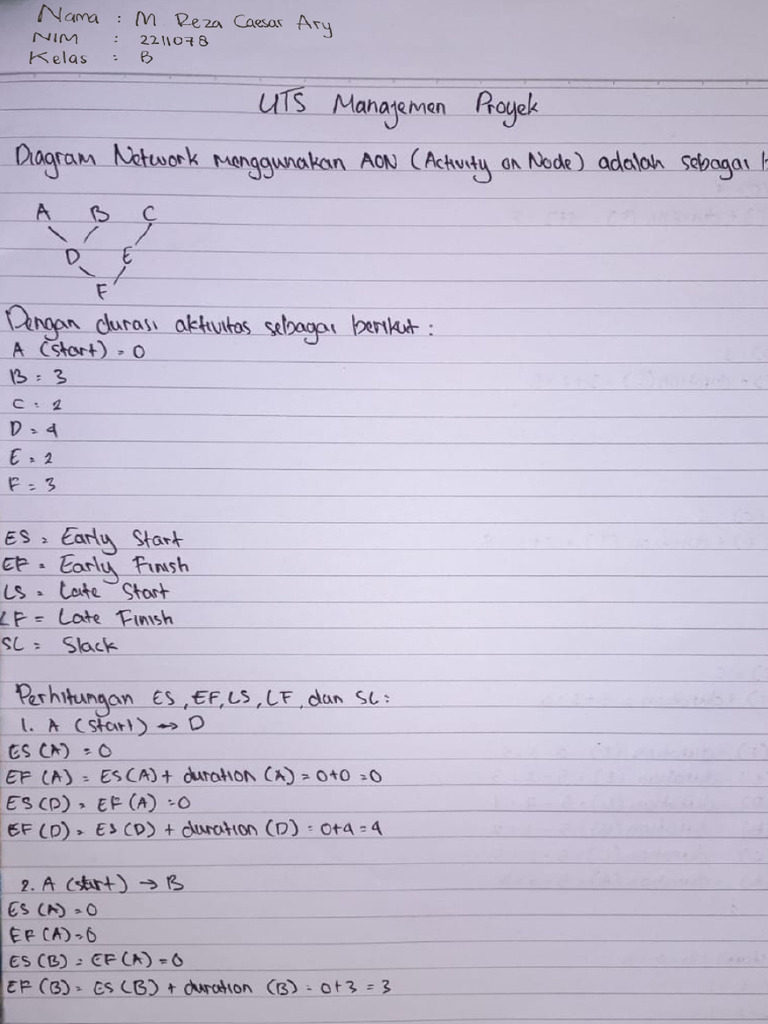 Nama : M Reza Caesar Ary
NIM : 2211078
Kelas : B
UTS Manajemen Proyek
Diagram Network menggunakan AON (Activity on Node) adalah sebagai
A B C
D E
F
Dengan durasi aktivitas sebagai berikut :
A (start) = 0
B = 3
C = 2
D = 4
E = 2
F = 3
ES = Early Start
EF = Early Finish
LS = Late Start
LF = Late Finish
SL = Slack
Perhitungan ES, EF, LS, LF, dan SL :
1. A (start) → D
ES (A) = 0
EF (A) = ES(A) + duration (A) = 0+0 = 0
ES (D) = EF (A) = 0
EF (D) = ES (D) + duration (D) = 0+4 = 4
2. A (start) → B
ES (A) = 0
EF (A) = 0
ES (B) = EF (A) = 0
EF (B) = ES (B) + duration (B) = 0+3 = 3